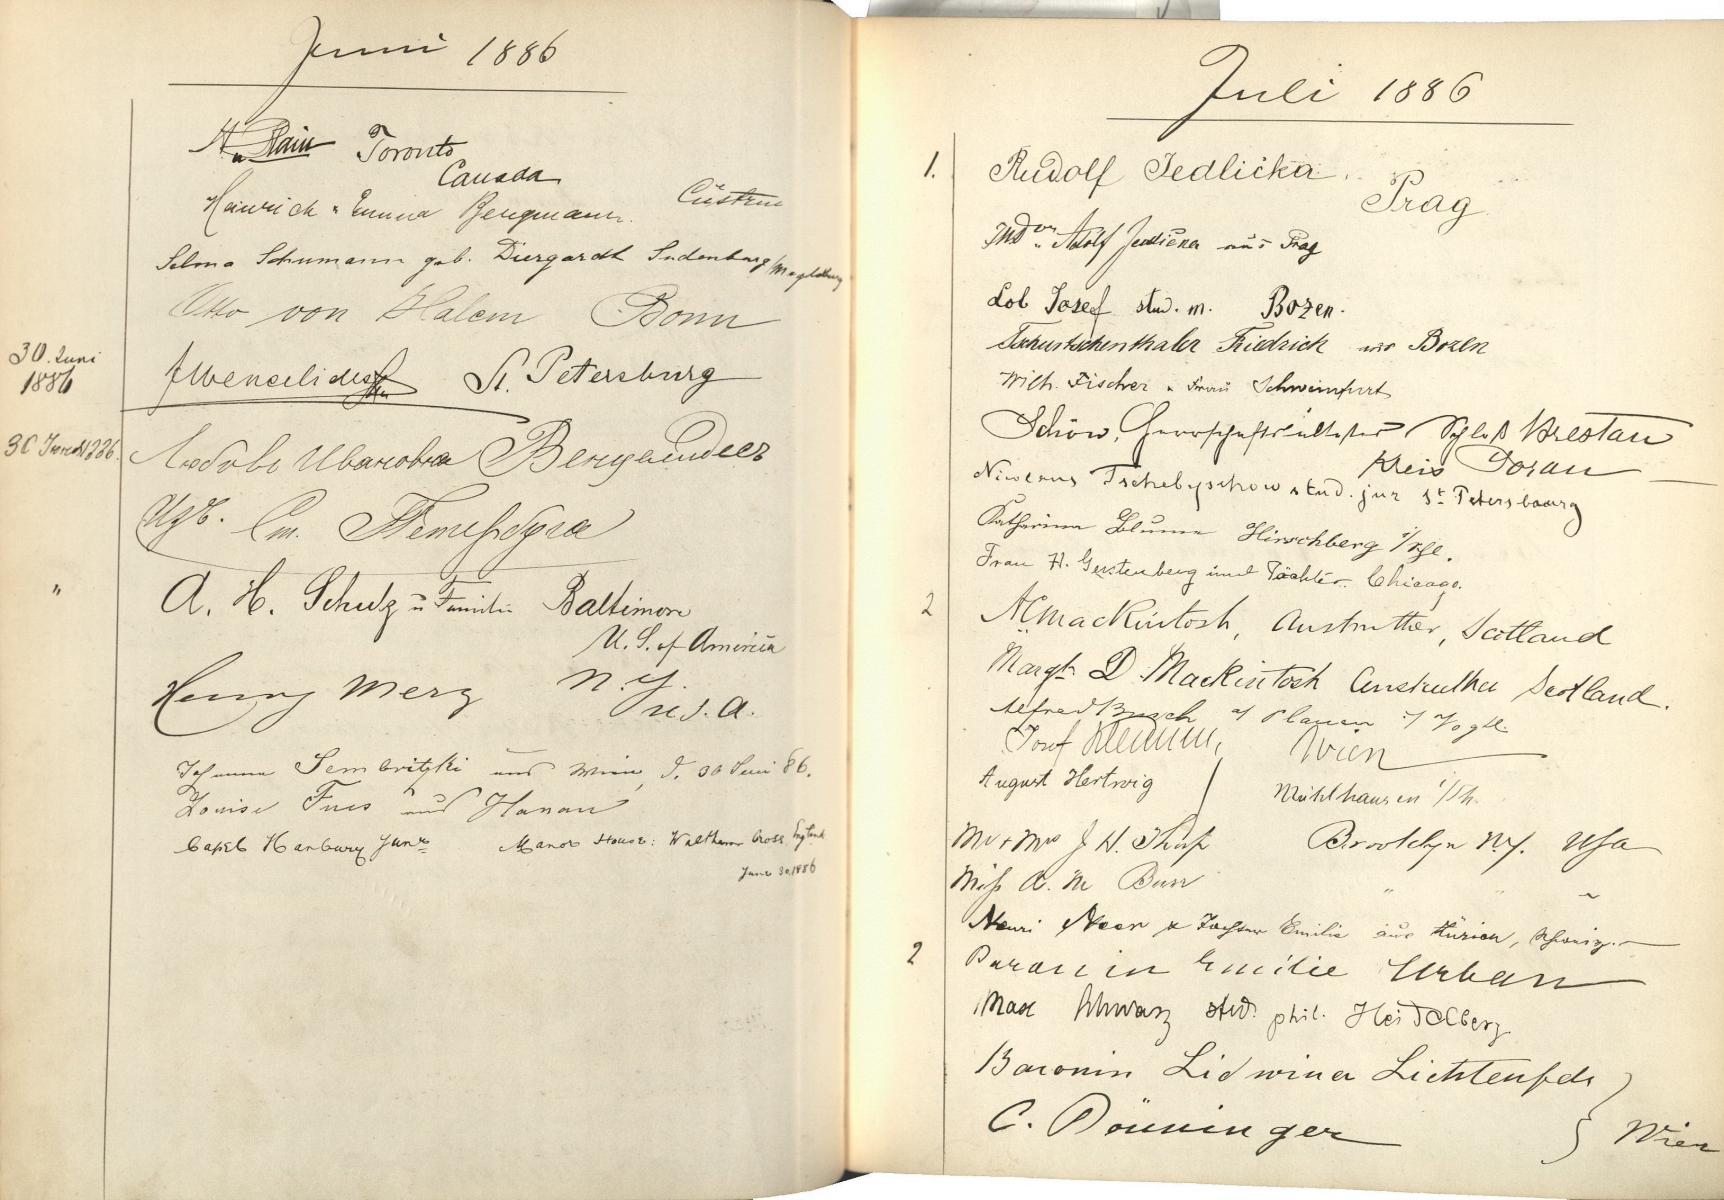 Juni 1886
Toronto
Canada
Heinrich u. Emma Bergmann. Cüstrin
Selma Schumann geb. Diergardt Sudenburg/Magdeburg
Otto von Halem Bonn
30. Juni
1886
St. Petersburg
30 1886.
Любовь Ивановна
Изъ. Ст. Петербурга
"
A. H. Schulz u Familie Baltimore
U. S. of America
Henry Merz N.Y.
U.S.A.
Johanna Sembritzki und Wien, d. 30 Juni 86.
Louise Fues und Hanau
Capel Hanbury Junr Manor House: Waltham Cross England
June 30. 1886
Juli 1886
1. Rudolf Jedlička.
Prag
Adolf Jedlička aus Prag
Lob Josef stud. m. Bozen.
Tschurtschenthaler Friedrich aus Bozen
Wilh. Fischer u Frau Schweinfurt
Schön, Schloß
Kreis
Tschebyschow stud. jur St Petersbourg
Katharina Blume Hirschberg i/Schl.
Frau H. Gerstenberg und Töchter. Chicago.
2 Mackintosh, Anstruther, Scotland
Margt D. Mackintosh Anstruther Scotland.
Alfred Busch a/ Plauen i/ Vogtl.
Josef Wien
August Hertwig Mühlhausen i/Th.
Mr & Mrs J. H. Brooklyn N.Y. USA
Miss A. M " " "
Henri & Tochter Emilie aus Zürich, Schweiz.
2 Baronin Emilie Urban
Max Schwarz stud. phil. Heidelberg
Baronin Lidwina Lichtenfels
C. Dönninger } Wien